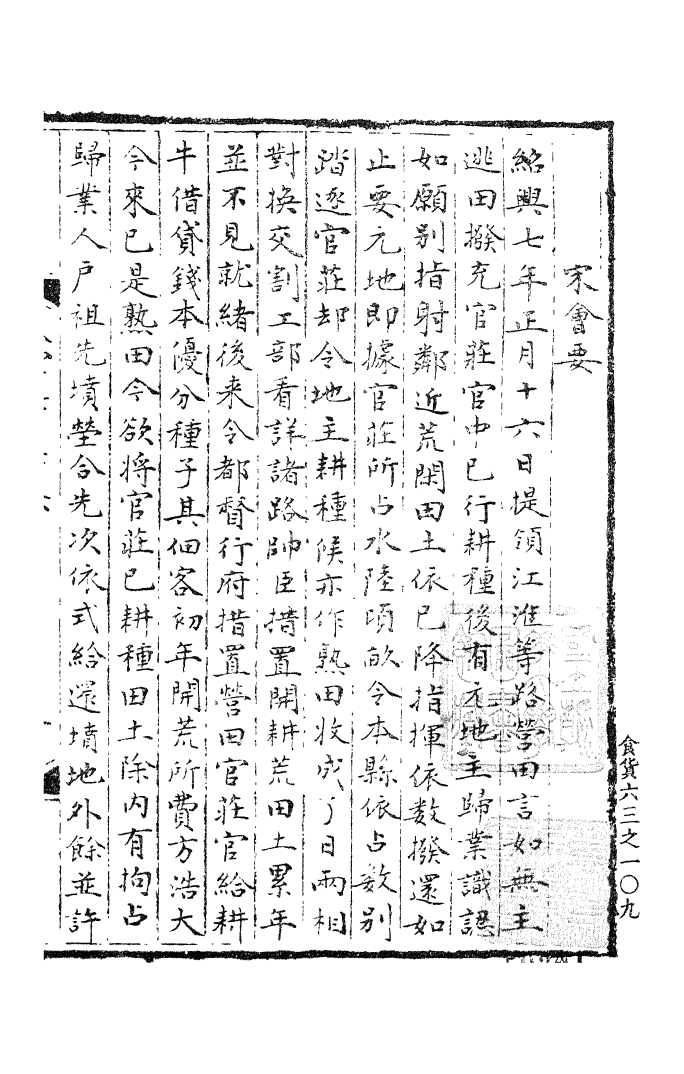 宋會要
紹興七年正月十六日提領江淮等路營田言如無主
逃田撥充官莊官中已行耕種後有元地主歸業識認
如願別指射鄰近荒閑田土依已降指揮依數撥還如
止要元地即據官莊所占水陸頃畝令本縣依占數別
踏逐官莊却令地主耕種候亦作熟田收成了日兩相
對換交割工部看詳諸路帥臣措置開耕荒田土累年
並不見就緒後来令都督行府措置營田官莊官給耕
牛借貸錢本優分種子其佃客初年開荒所費方浩大
今來已是熟田今欲将官莊已耕種田土除内有拘占
歸業人戶祖先墳塋合先次依式給還墳地外餘並許
食貨六三之一〇九